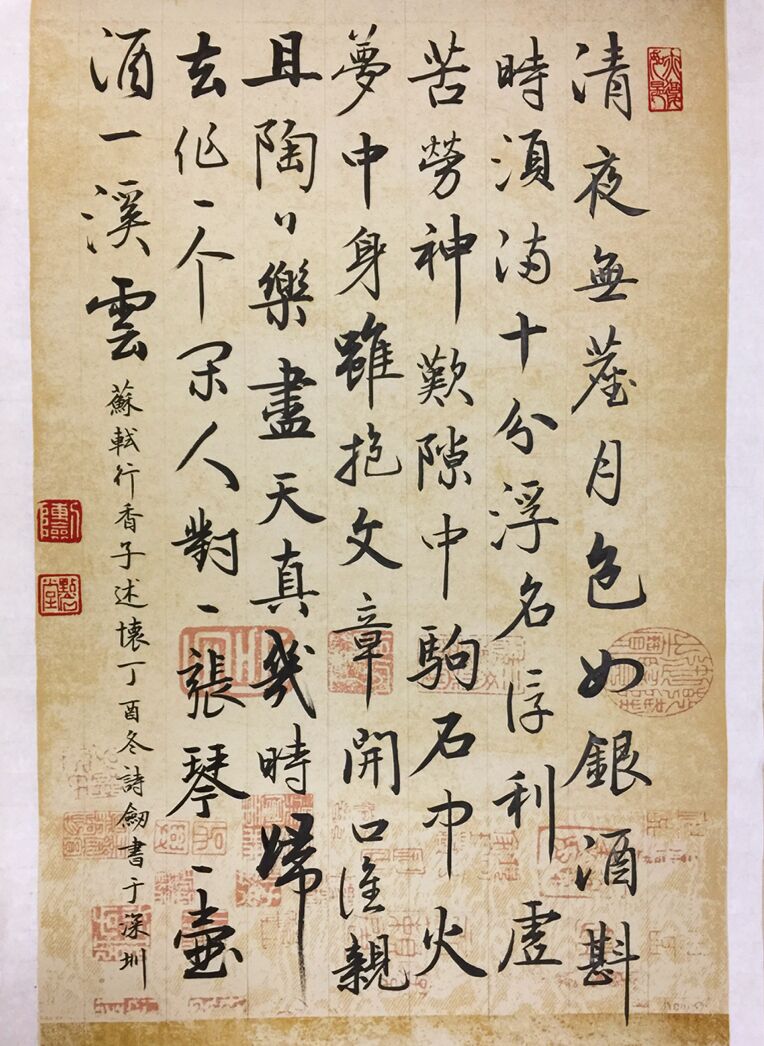 清夜無塵月色如銀酒斟
時須滿十分浮名浮利虛
苦勞神歎隙中駒石中火
夢中身雖抱文章開口誰親
且陶〻樂盡天真幾時歸
去作一个閑人對一張琴一壺
酒一溪雲
蘇軾行香子述懷丁酉冬詩劍書于深圳